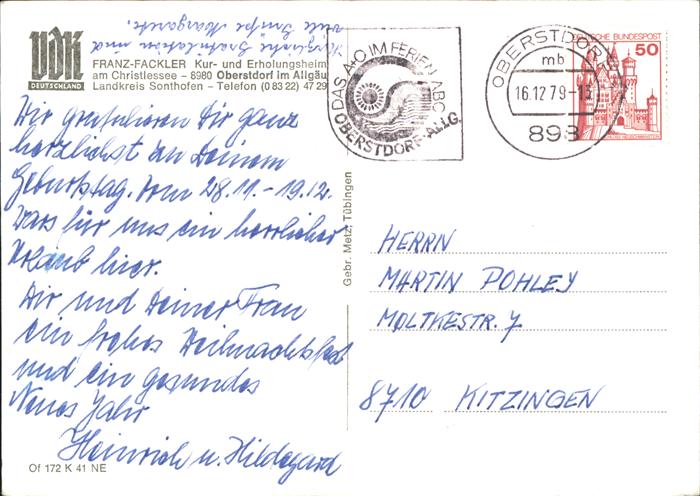 Herzliche Gratulation und
viele Grüße Margarete.
VdK
DEUTSCHLAND
FRANZ-FACKLER Kur- und Erholungsheim
am Christlessee – 8980 Oberstdorf im Allgäu
Landkreis Sonthofen – Telefon (0 83 22) 47 29
Wir gratulieren Dir ganz
herzlichst zu Deinem
Geburtstag. Vom 28.11. – 19.12.
Wars für uns ein herrlicher
Urlaub hier.
Dir und Deiner Frau
ein frohes Weihnachtsfest
und ein gesundes
Neues Jahr
Heinrich u. Hildegard
Of 172 K 41 NE
Gebr. Metz, Tübingen
DAS A+O IM FERIEN-ABC
OBERSTDORF-ALLG.
OBERSTDORF
mb
16.12.79-13
898
DEUTSCHE BUNDESPOST
50
HERRN
MARTIN POHLEY
MOLTKESTR. 7
8710 KITZINGEN